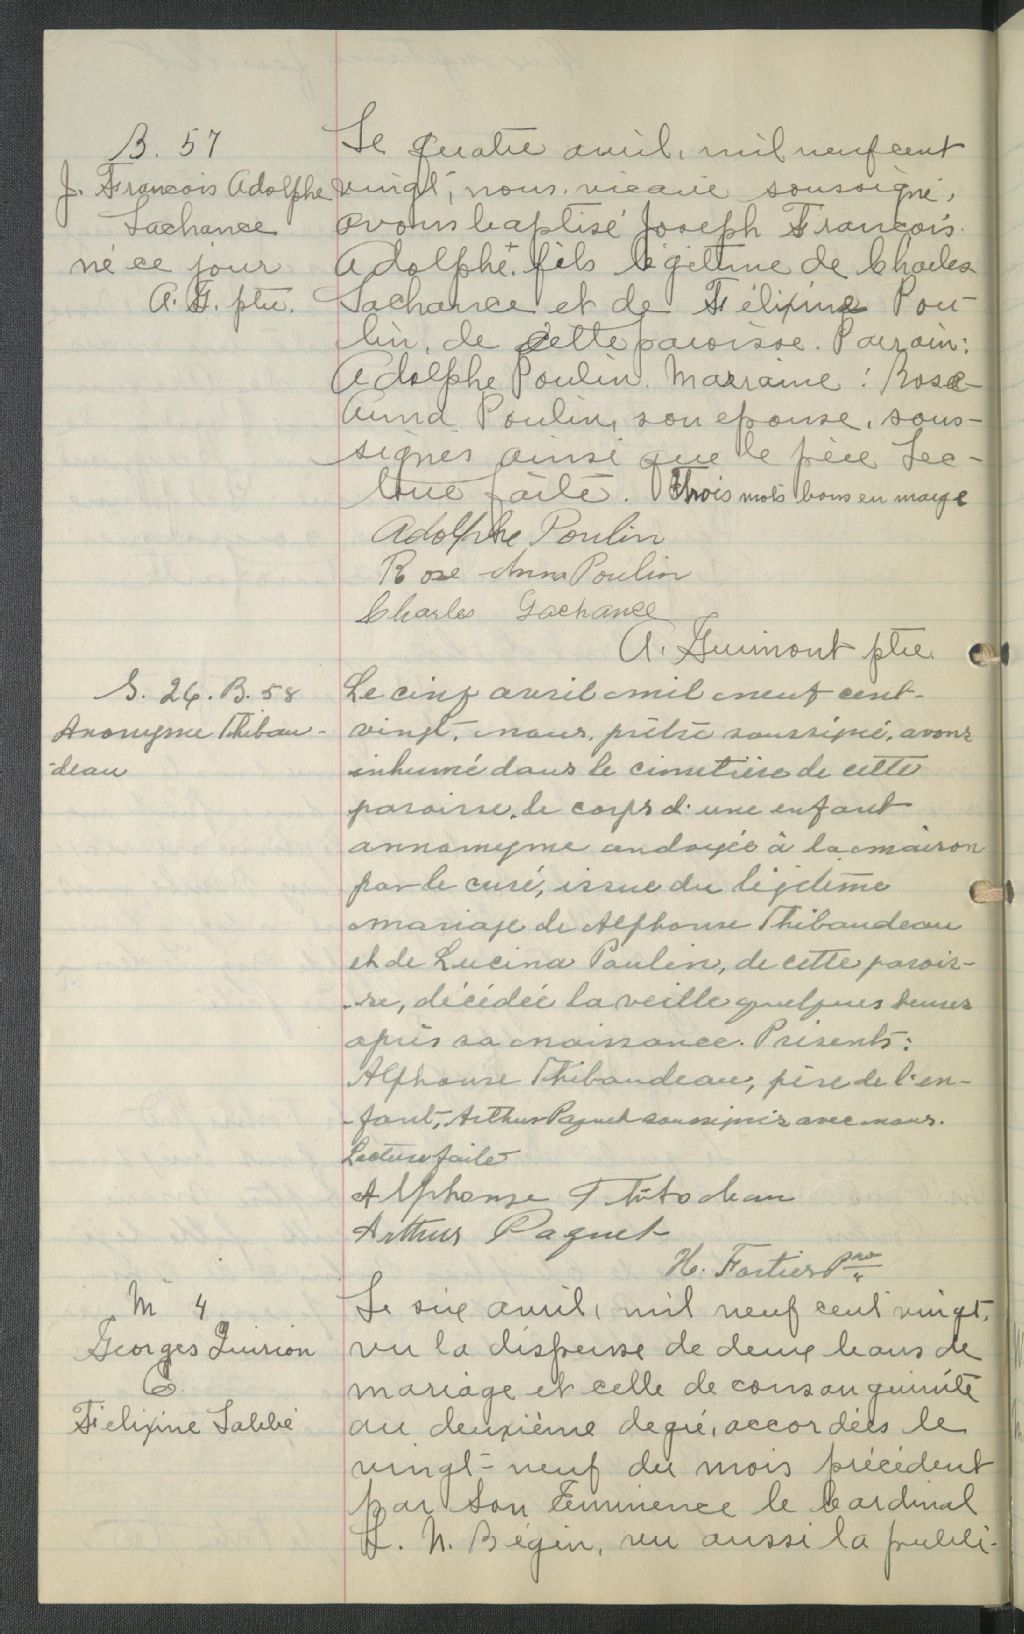 B. 57
J. François Adolphe
Lachance
né ce jour
A. G. ptre.
Le quatre avril, mil neuf cent
vingt, nous, vicaire soussigné,
avons baptisé Joseph François
Adolphe, fils légitime de Charles
Lachance et de Félixine Pou-
lin, de cette paroisse. Parrain:
Adolphe Poulin. Marraine: Rose-
Anna Poulin, son épouse, sous-
signés ainsi que le père Lec-
ture faite. Trois mots bons en marge
Adolphe Poulin
Rose Anna Poulin
Charles Lachance
A. Guimont ptre.
S. 26. B. 58
Anonyme Thibau-
-deau
Le cinq avril mil neuf cent-
vingt, nous, prêtre soussigné, avons
inhumé dans le cimetière de cette
paroisse, le corps d'une enfant
annonyme ondoyée à la maison
par le curé, issue du légitime
mariage de Alphonse Thibaudeau
et de Lucina Poulin, de cette parois-
-se, décédée la veille quelques heures
après sa naissance. Présents:
Alphonse Thibaudeau, père de l'en-
-fant, Arthur Paquet soussignés avec nous.
Lecture faite
Alphonse
Arthur Paquet
H. Fortier Ptre
M 4
Georges Quirion
&
Félixine Labbé
Le six avril, mil neuf cent vingt,
vu la dispense de deux bans de
mariage et celle de consanguinité
au deuxième degré, accordées le
vingt-neuf du mois précédent
par Son Eminence le Cardinal
L. N. Bégin, vu aussi la publi-